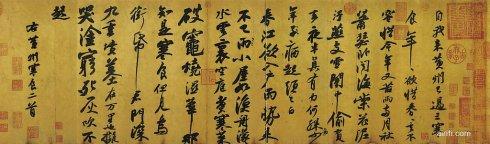 自我来黄州已過三寒
食年々欲惜春春去不
容惜今年又苦雨兩月秋
蕭瑟卧聞海棠花泥
汙燕支雪闇中偷負
去夜半真有力何殊少
年子病起頭已白
春江欲入戶雨勢来
不已雨小屋如漁舟濛々
水雲裏空庖煮寒菜
破竈燒濕葦那
知是寒食但見烏
銜帋君門深
九重墳墓在万里也擬
哭塗窮死灰吹不
起
右黄州寒食二首